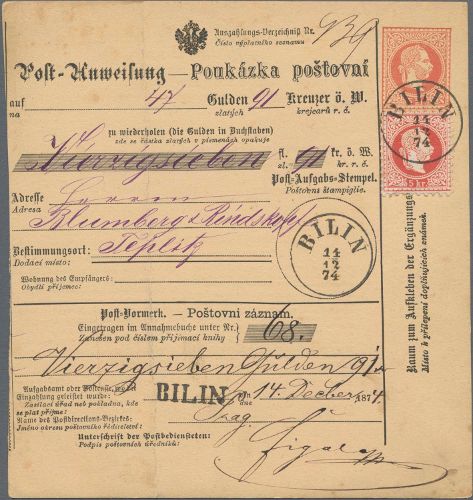 Auszahlungs-Verzeichniß Nr.
Číslo výplatního seznamu
139
Post-Anweisung — Poukázka poštovní
auf 47 Gulden 91 Kreuzer ö. W.
na zlatých krejcarů r. č.
zu wiederholen (die Gulden in Buchstaben)
zde se částka zlatých v písmenách opakuje
Vierzigsieben fl. 91 kr. ö. W.
zl. kr. r. č.
Post-Aufgabs-Stempel.
Poštovní štampiglie.
Adresse Herren
Adresa
Blumberg & Rindskopf
Bestimmungsort: Teplitz
Dodací místo:
Wohnung des Empfängers:
Obydlí příjemce:
BILIN
14
12
74
BILIN
14
12
74
5 kr.
Raum zum Aufkleben der Ergänzungs
Místo k přilepení doplňujících známek.
Post-Vormerk. — Poštovní záznam.
Eingetragen im Annahmebuche unter Nr.
Zanešen pod číslem přijímací knihy
68.
Vierzigsieben Gulden 91
Aufgabsamt oder
Einzahlung geleistet wurde:
Zasílací úřad neb pokladna, kde
se plat přijme:
Name des Postdirections-Bezirkes:
Jméno okresu poštovního ředitelství:
BILIN
14. Decber 1874.
Prag.
Unterschrift der Postbediensteten:
Podpis poštovních úředníků: